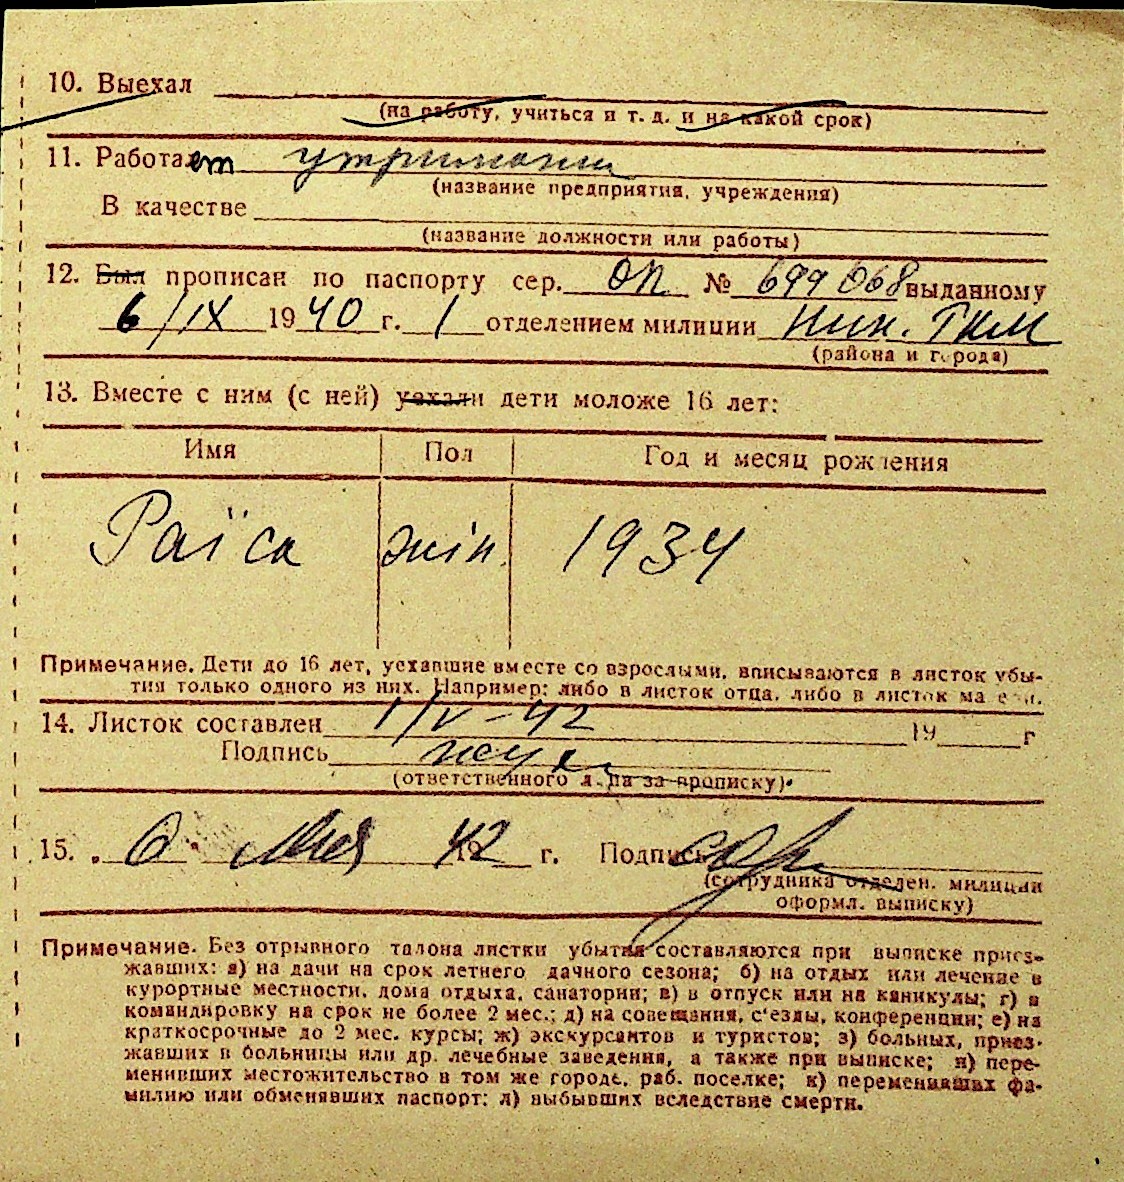 10. Выехал
(на работу, учиться и т. д. и на какой срок)
11. Работает утриманні
(название предприятия, учреждения)
В качестве
(название должности или работы)
12. Был прописан по паспорту сер. ОП № 699068 выданному
6/IX 1940 г. 1 отделением милиции
(района и города)
13. Вместе с ним (с ней) уехали дети моложе 16 лет:
Имя Пол Год и месяц рождения
Раїса жін. 1934
Примечание. Дети до 16 лет, уехавшие вместе со взрослыми, вписываются в листок убы-
тия только одного из них. Например: либо в листок отца, либо в листок матери.
14. Листок составлен 1/V-42 19 г
Подпись
(ответственного лица за прописку).
15. „6" Мая 1942 г. Подпись
(сотрудника отделен. милиции
оформл. выписку)
Примечание. Без отрывного талона листки убытия составляются при выписке приез-
жавших: а) на дачи на срок летнего дачного сезона; б) на отдых или лечение в
курортные местности, дома отдыха, санатории; в) в отпуск или на каникулы; г) в
командировку на срок не более 2 мес.; д) на совещания, с'езды, конференции; е) на
краткосрочные до 2 мес. курсы; ж) экскурсантов и туристов; з) больных, приез-
жавших в больницы или др. лечебные заведения, а также при выписке; и) пере-
менивших местожительство в том же городе, раб. поселке; к) переменивших фа-
милию или обменявших паспорт; л) выбывших вследствие смерти.